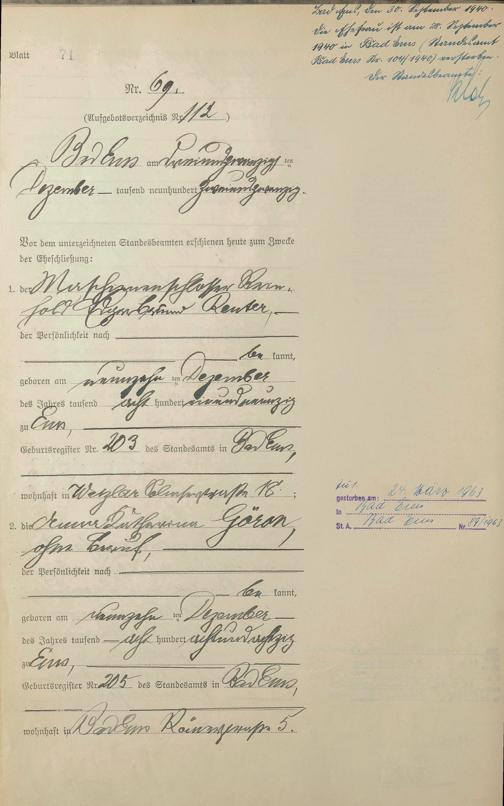 Bad Ems, den 30. September 1940.
Die Ehefrau ist am 28. September
1940 in Bad Ems (Standesamt
Bad Ems Nr. 104/1940) verstorben.
Der Standesbeamte:
Blatt 71
Nr. 69.
(Aufgebotsverzeichnis Nr. 112)
Bad Ems am dreiundzwanzigsten
Dezember tausend neunhundert zweiundzwanzig.
Vor dem unterzeichneten Standesbeamten erschienen heute zum Zwecke
der Eheschließung:
1. der Maschinenschlosser Rein-
hold Reuter,
der Persönlichkeit nach
be kannt,
geboren am neunzehnten Dezember
des Jahres tausend acht hundert neunundneunzig
zu Ems,
Geburtsregister Nr. 203 des Standesamts in Bad Ems,
wohnhaft in Wetzlar ;
2. die Anna Katharina Göron,
ohne Beruf,
der Persönlichkeit nach
be kannt,
geboren am neunzehnten Dezember
des Jahres tausend acht hundert achtundachtzig
zu Ems,
Geburtsregister Nr. 205 des Standesamts in Bad Ems,
wohnhaft in Bad Ems 5.
gestorben am: 24. März 1963
in Bad Ems
St. A. Bad Ems Nr. /1963